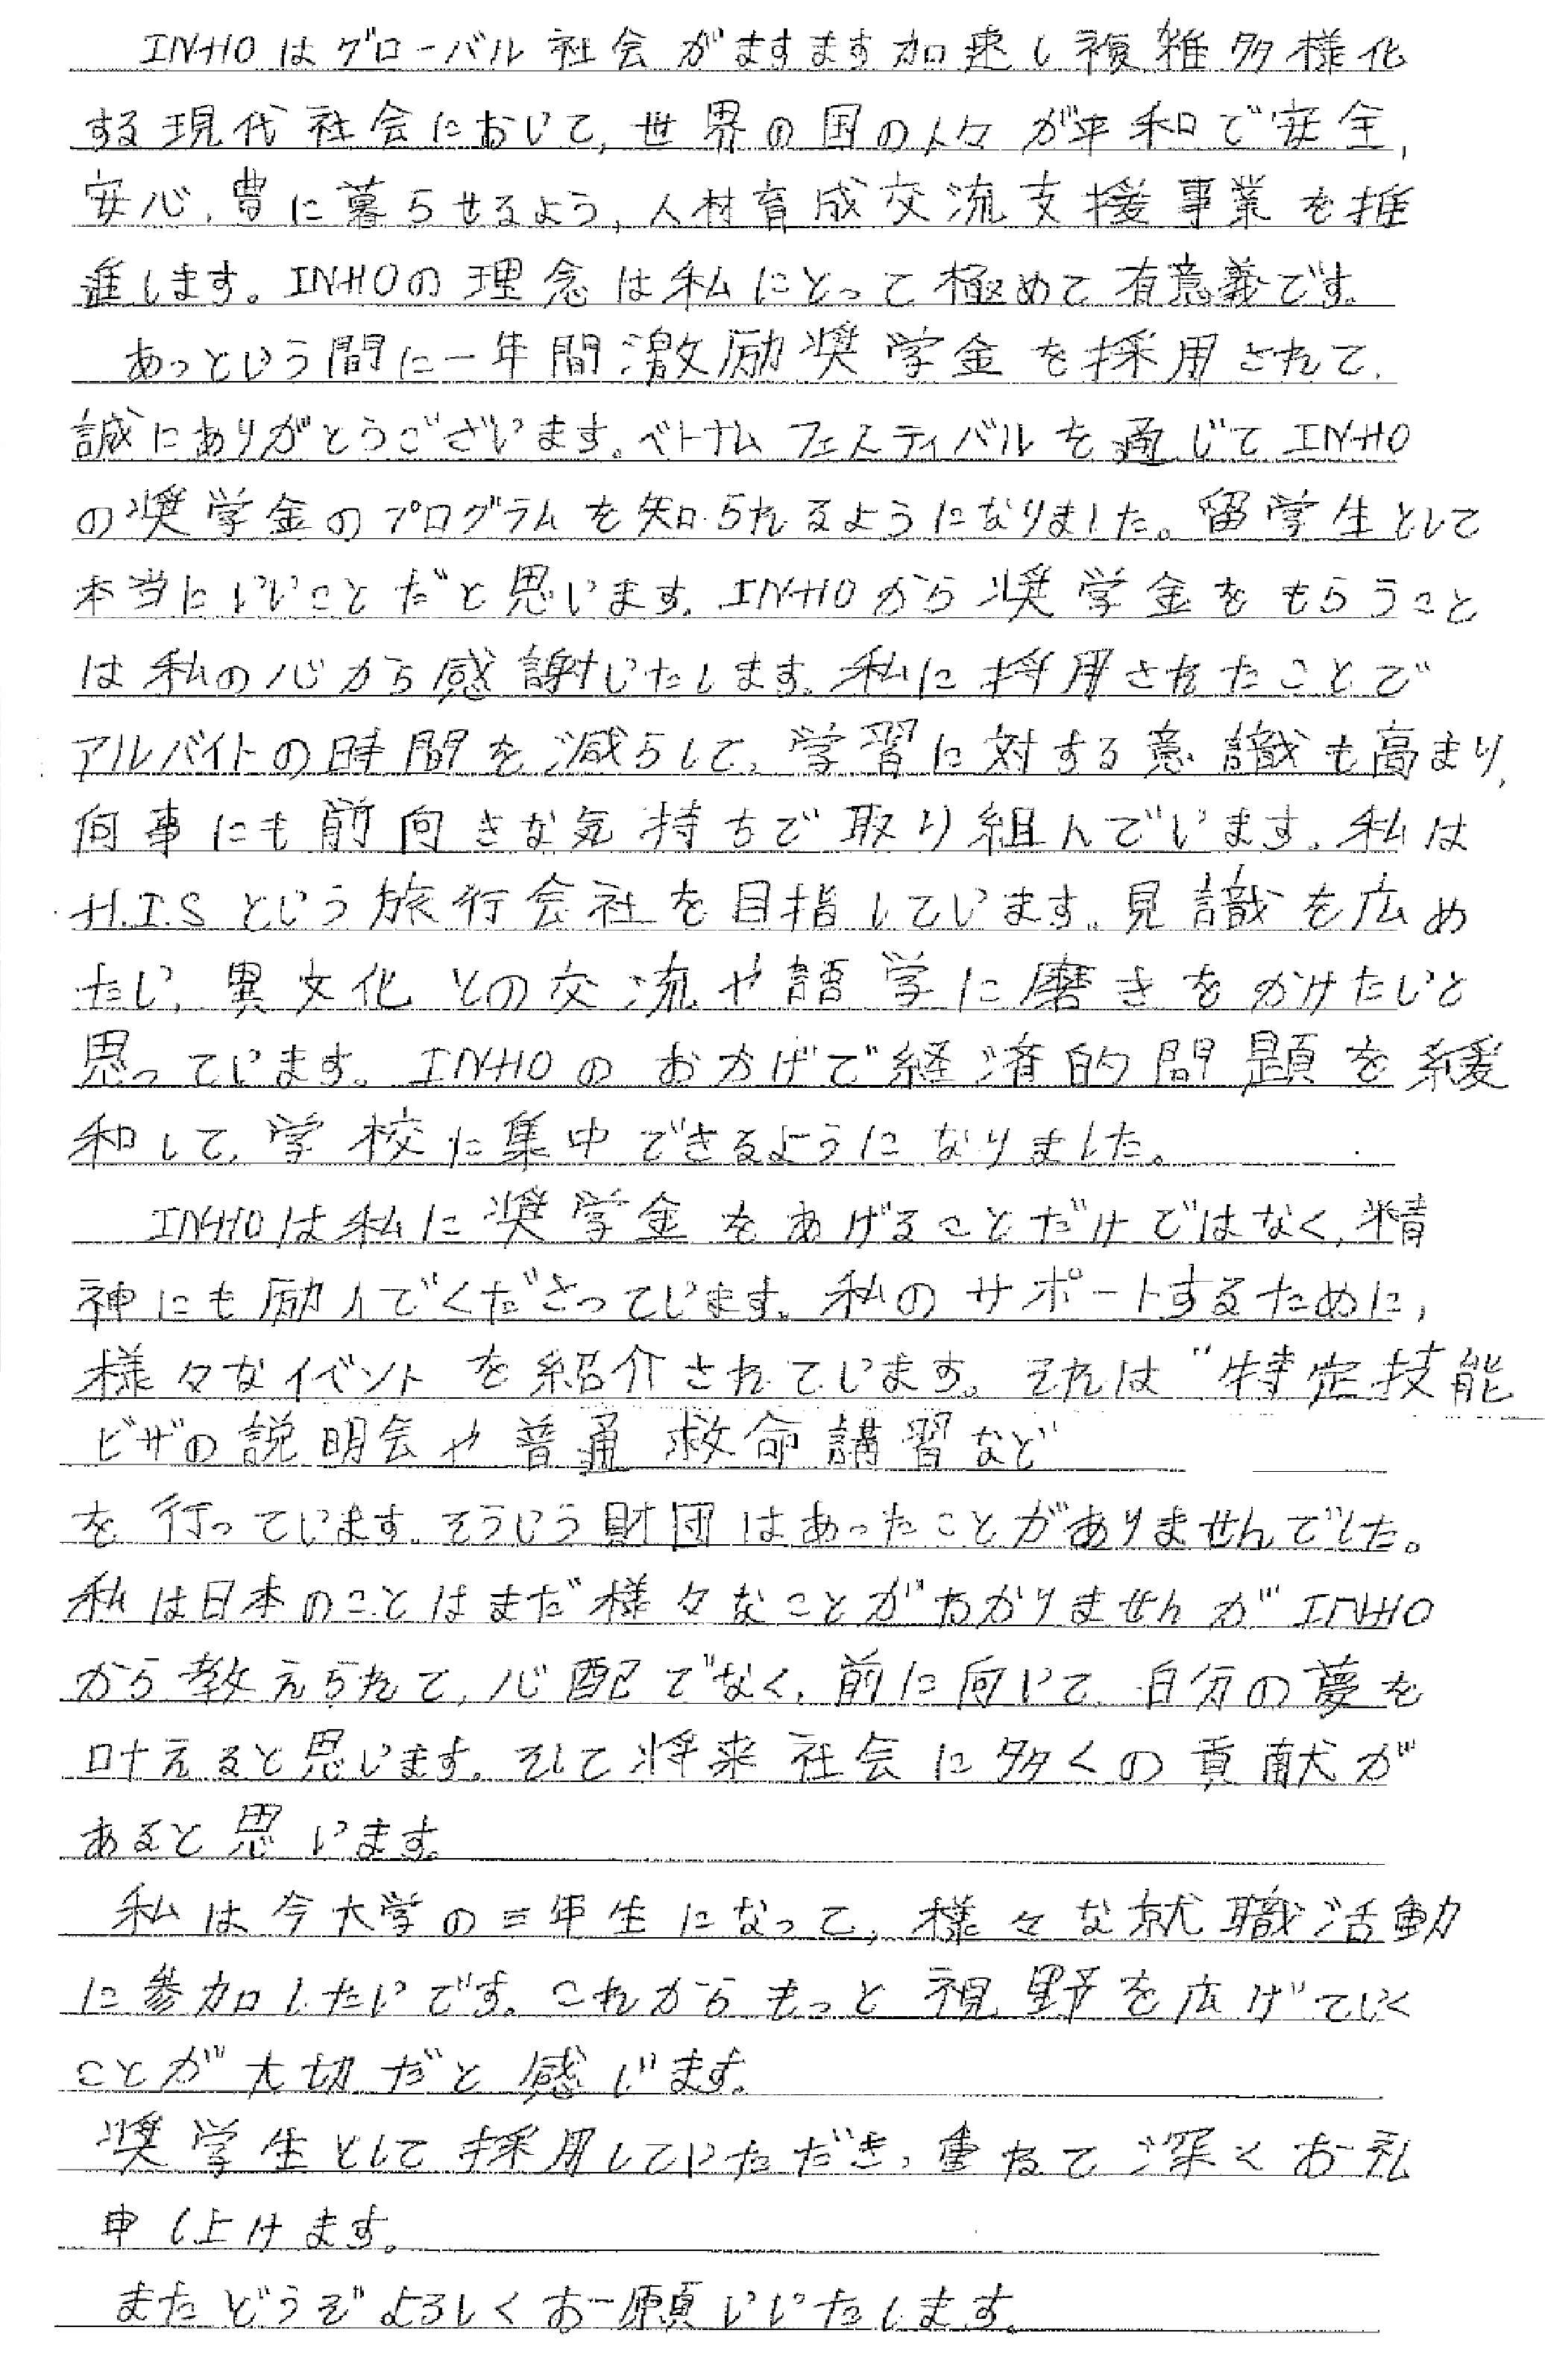 INHOはグローバル社会がますます加速し複雑多様化
する現代社会において,世界の国の人々が平和で安全,
安心,豊に暮らせるよう,人材育成交流支援事業を推
進します。INHOの理念は私にとって極めて有意義です。
あっという間に一年間激励奨学金を採用されて,
誠にありがとうございます。ベトナムフェスティバルを通じてINHO
の奨学金のプログラムを知られるようになりました。留学生として
本当にいいことだと思います。INHOから奨学金をもらうこと
は私の心から感謝いたします。私に採用されたことで
アルバイトの時間を減らして,学習に対する意識も高まり,
何事にも前向きな気持ちで取り組んでいます。私は
H.I.Sという旅行会社を目指しています。見識を広め
たい,異文化との交流や語学に磨きをかけたいと
思っています。INHOのおかげで経済的問題を緩
和して,学校に集中できるようになりました。
INHOは私に奨学金をあげることだけではなく,精
神にも励んでくださっています。私のサポートするために,
様々なイベントを紹介されています。それは"特定技能
ビザの説明会や普通救命講習など"
を行っています。そういう財団はあったことがありませんでした。
私は日本のことはまだ様々なことがわかりませんがINHO
から教えられて,心配でなく,前に向いて,自分の夢を
叶えると思います。そして将来社会に多くの貢献が
あると思います。
私は今大学の三年生になって,様々な就職活動
に参加したいです。これからもっと視野を広げていく
ことが大切だと感じます。
奨学生として採用していただき,重ねて深くお礼
申し上けます。
またどうぞよろしくお願いいたします。